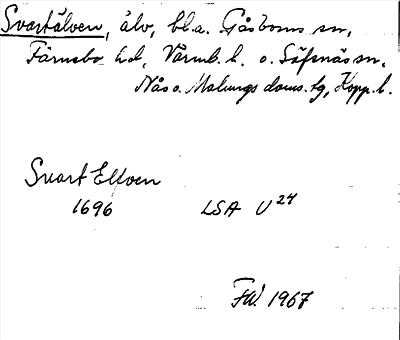 Svartälven, älv, bl.a. Gåsborns sn,
Färnebo hd, Värml. l. o. Säfsnäs sn,
Nås o. Malungs doms. tg, Kopp. l.
Svart Elfven
1696 LSA U 24
FW. 1967